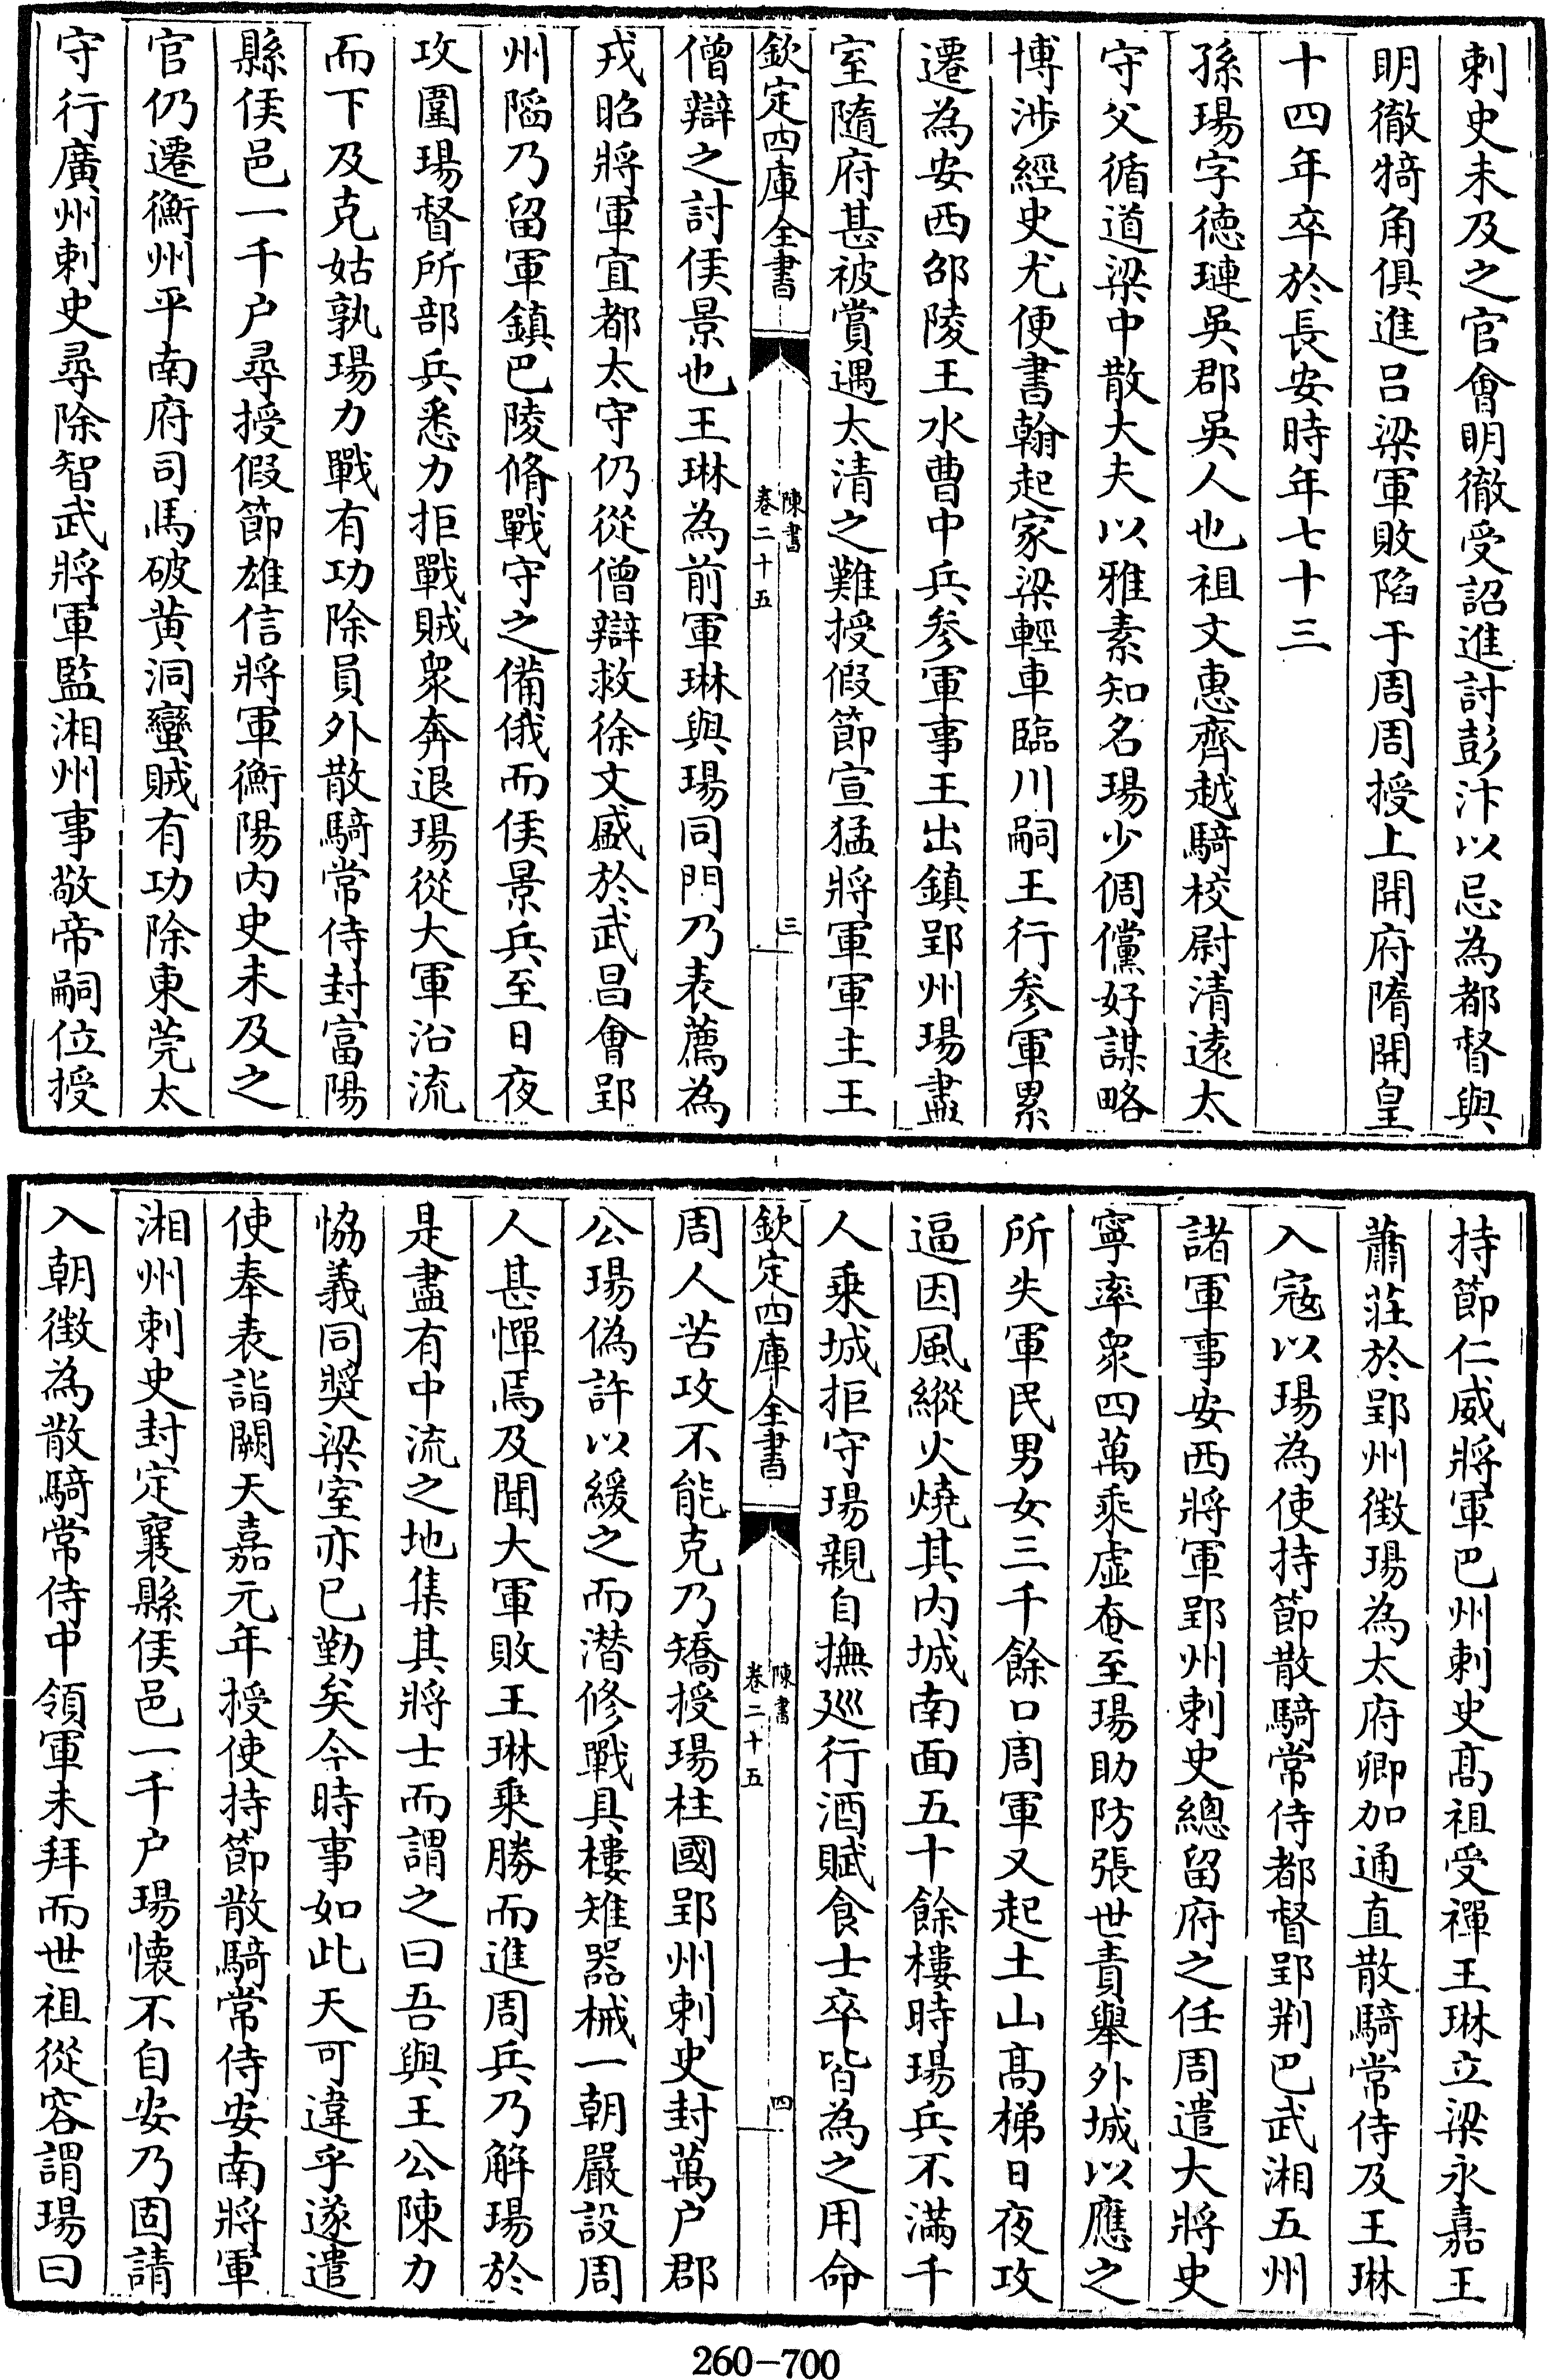 刺史未及之官會明徹受詔進討彭汴以忌為都督與
明徹犄角俱進呂梁軍敗陷于周周授上開府隋開皇
十四年卒於長安時年七十三
孫瑒字德璉吳郡吳人也祖文惠齊越騎校尉清遠太
守父循道梁中散大夫以雅素知名瑒少倜儻好謀略
博涉經史尤便書翰起家梁輕車臨川嗣王行參軍累
遷為安西邵陵王水曹中兵參軍事王出鎮郢州瑒盡
室隨府甚被賞遇太清之難授假節宣猛將軍軍主王
欽定四庫全書
陳書
卷二十五
三
僧辯之討侯景也王琳為前軍琳與瑒同門乃表薦為
戎昭將軍宜都太守仍從僧辯救徐文盛於武昌會郢
州陷乃留軍鎮巴陵脩戰守之備俄而侯景兵至日夜
攻圍瑒督所部兵悉力拒戰賊衆奔退瑒從大軍沿流
而下及克姑孰瑒力戰有功除員外散騎常侍封富陽
縣侯邑一千户尋授假節雄信將軍衡陽內史未及之
官仍遷衡州平南府司馬破黄洞蠻賊有功除東莞太
守行廣州刺史尋除智武將軍監湘州事敬帝嗣位授
持節仁威將軍巴州刺史髙祖受禪王琳立梁永嘉王
蕭莊於郢州徵瑒為太府卿加通直散騎常侍及王琳
入寇以瑒為使持節散騎常侍都督郢荆巴武湘五州
諸軍事安西將軍郢州刺史總留府之任周遣大將史
寧率衆四萬乘虛奄至瑒助防張世貴舉外城以應之
所失軍民男女三千餘口周軍又起土山髙梯日夜攻
逼因風縱火燒其內城南面五十餘樓時瑒兵不滿千
人乘城拒守瑒親自撫廵行酒賦食士卒皆為之用命
欽定四庫全書
陳書
卷二十五
四
周人苦攻不能克乃矯授瑒柱國郢州刺史封萬户郡
公瑒偽許以緩之而潛修戰具樓雉器械一朝嚴設周
人甚憚焉及聞大軍敗王琳乗勝而進周兵乃解瑒於
是盡有中流之地集其將士而謂之曰吾與王公陳力
恊義同奬梁室亦已勤矣今時事如此天可違乎遂遣
使奉表詣闕天嘉元年授使持節散騎常侍安南將軍
湘州刺史封定襄縣侯邑一千户瑒懐不自安乃固請
入朝徵為散騎常侍中領軍未拜而世祖從容謂瑒曰
260-700